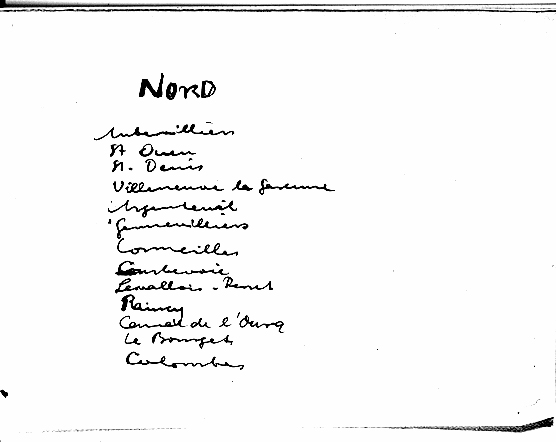 NORD
Aubervilliers
St Ouen
St. Denis
Villeneuve la Garenne
Argenteuil
Gennevilliers
Cormeilles
Courbevoie
Levallois - Perret
Raincy
Canal de l'Ourcq
Le Bourget
Colombes